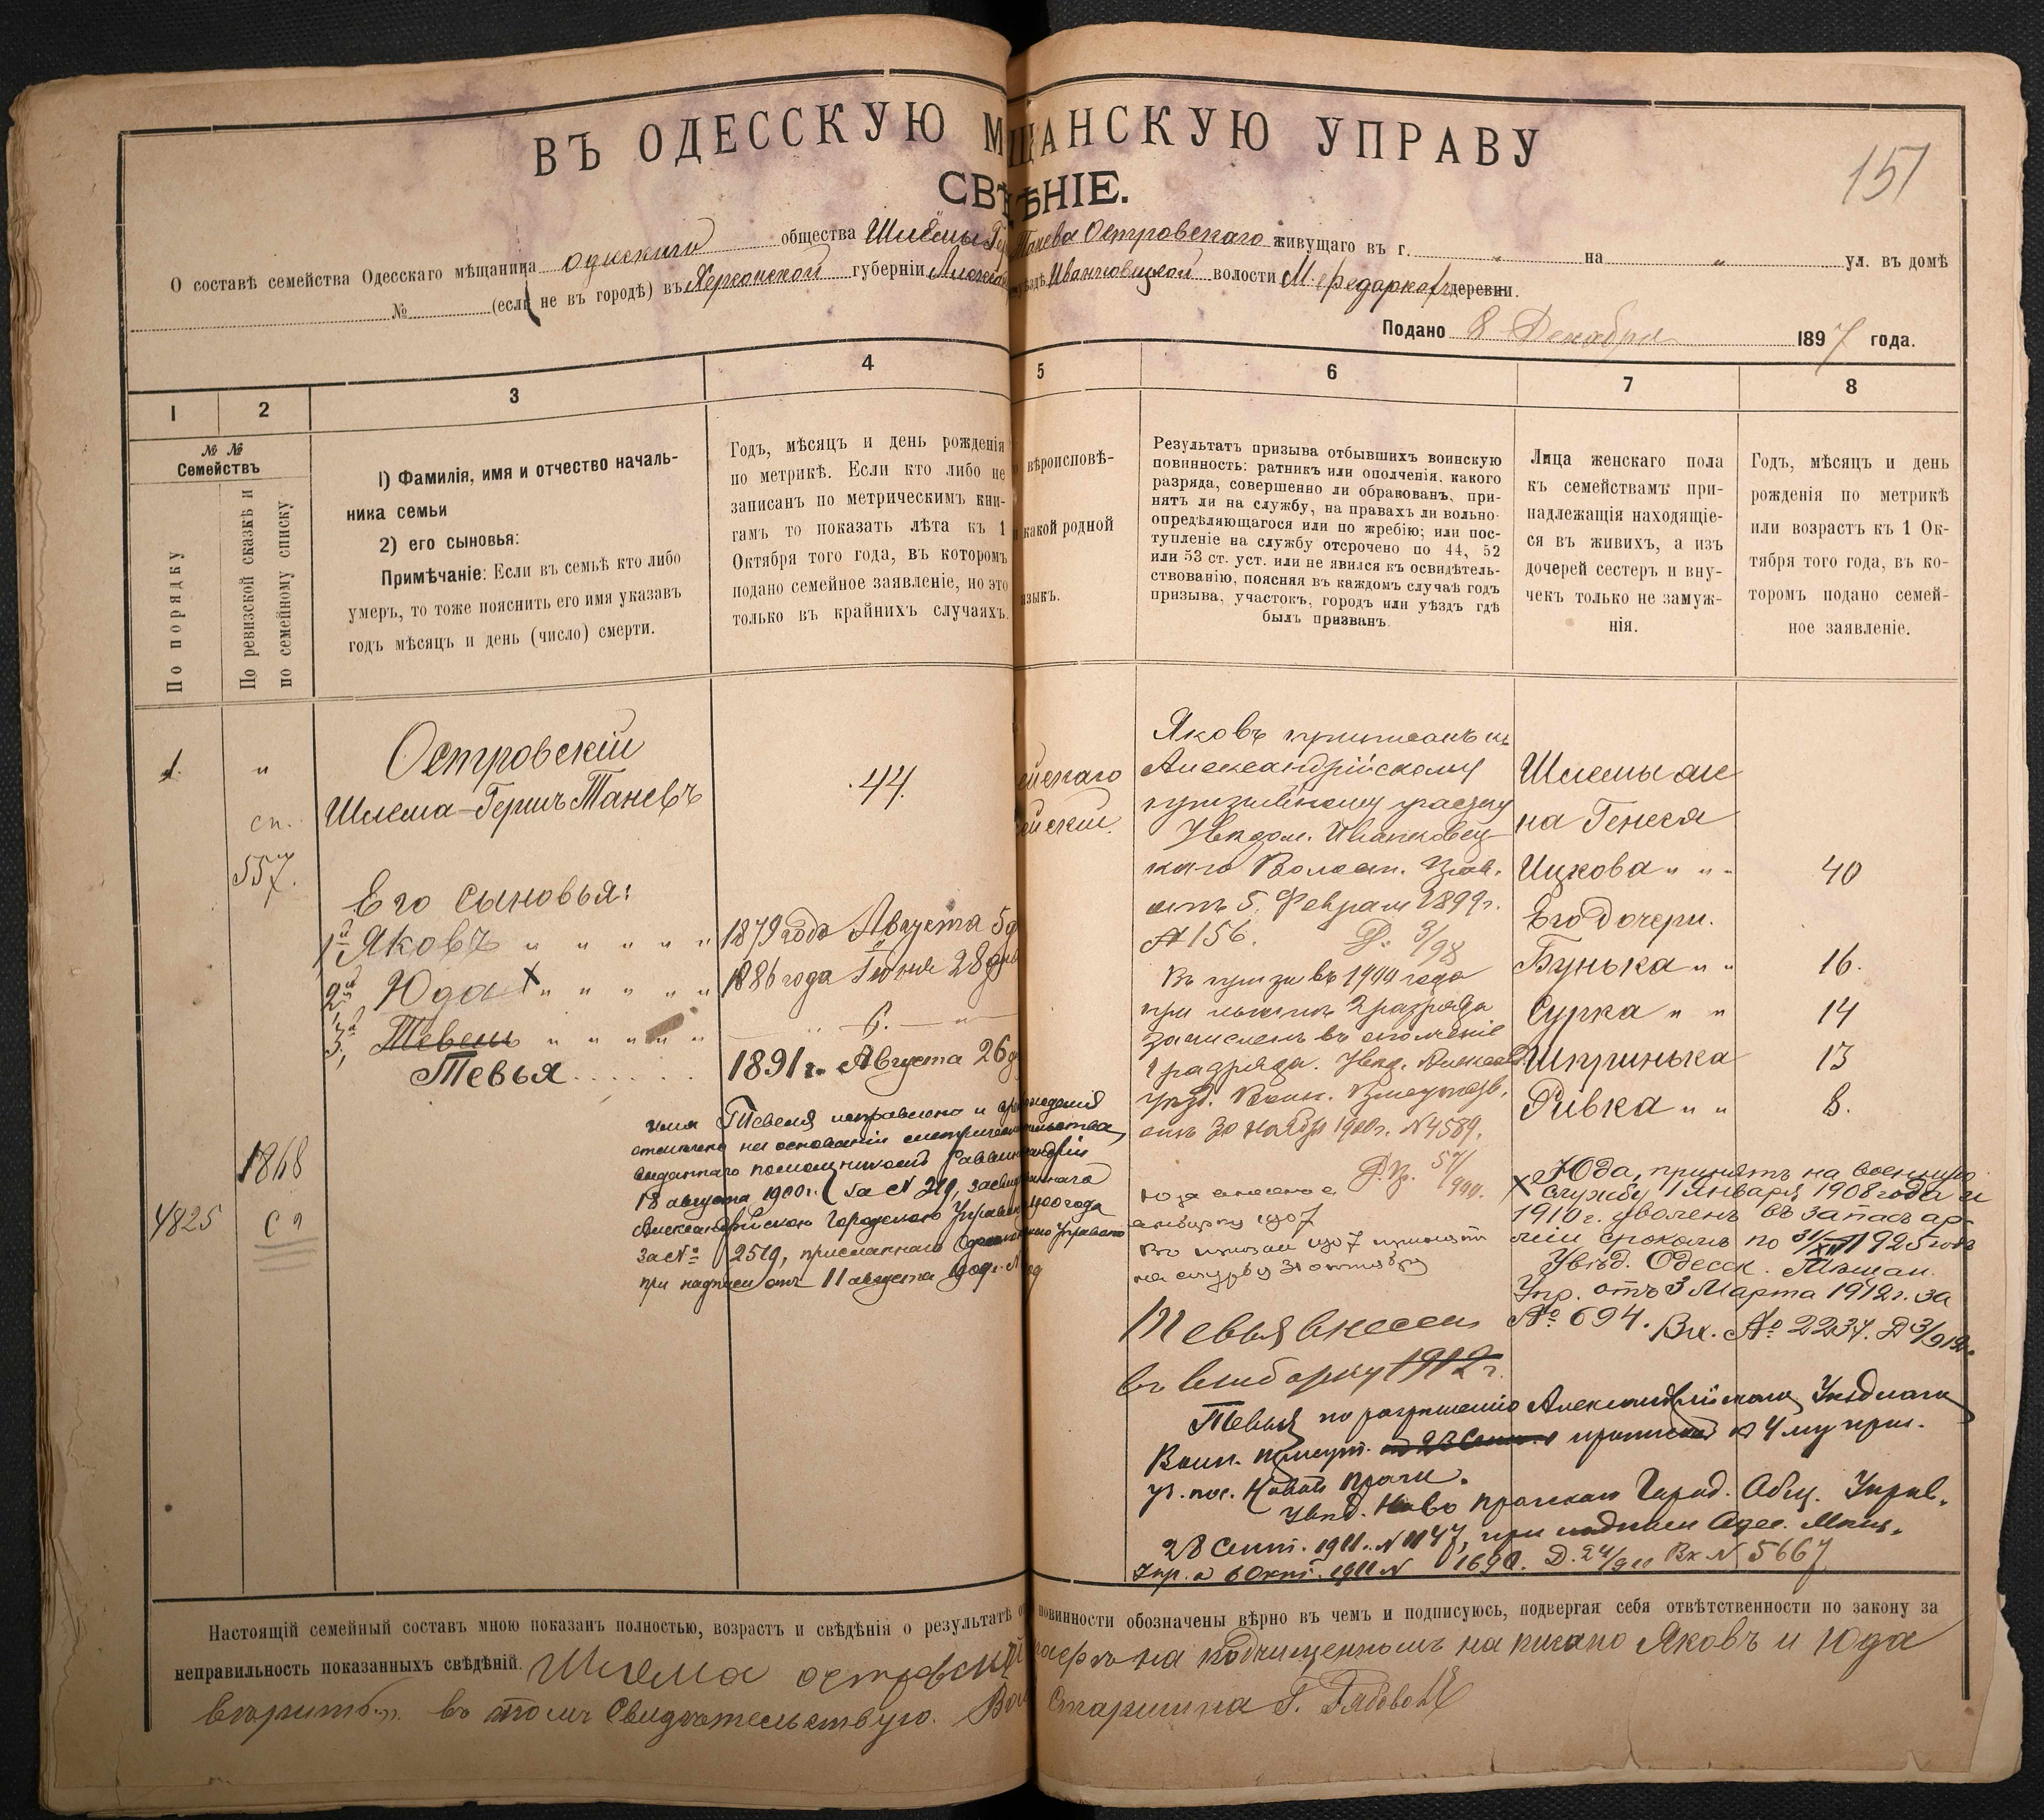 ВЪ ОДЕССКУЮ МѢЩАНСКУЮ УПРАВУ
СВѢДѢНІЕ.
151
О составѣ семейства Одесскаго мѣщанина одесскаго общества Шлёмы Гер Танева Островскаго живущаго въ г. „ на „ ул. въ домѣ
№ (если не въ городѣ) въ Херсонской губерніи уѣздѣ Иванковецкой волости М. Федоркахъ деревни.
Подано 8 Декабря 1897 года.
1 2 3 4 5 6 7 8
№ №
Семействъ
По порядку
По ревизской сказкѣ и
по семейному списку
1) Фамилія, имя и отчество началь-
ника семьи
2) его сыновья:
Примѣчаніе: Если въ семьѣ кто либо
умеръ, то тоже пояснить его имя указавъ
годъ мѣсяцъ и день (число) смерти.
Годъ, мѣсяцъ и день рожденія
по метрикѣ. Если кто либо не
записанъ по метрическимъ кни-
гамъ то показать лѣта къ 1
Октября того года, въ которомъ
подано семейное заявленіе, но это
только въ крайнихъ случаяхъ.
вѣроисповѣ-
какой родной
языкъ.
Результатъ призыва отбывшихъ воинскую
повинность: ратникъ или ополченія, какого
разряда, совершенно ли обракованъ, при-
нятъ ли на службу, на правахъ ли вольно-
опредѣляющагося или по жребію; или пос-
тупленіе на службу отсрочено по 44, 52
или 53 ст. уст. или не явился къ освидѣтель-
ствованію, поясняя въ каждомъ случаѣ годъ
призыва, участокъ, городъ или уѣздъ гдѣ
былъ призванъ.
Лица женскаго пола
къ семействамъ при-
надлежащія находящіе-
ся въ живихъ, а изъ
дочерей сестеръ и вну-
чекъ только не замуж-
нія.
Годъ, мѣсяцъ и день
рожденія по метрикѣ
или возрастъ къ 1 Ок-
тября того года, въ ко-
торомъ подано семей-
ное заявленіе.
1.
„
сп.
557.
Островскій
Шлема-Гершъ Таневъ
44.
Его сыновья:
1й Яковъ „ „ „ „ „
1879 года Августа 5 д
2й Юда X „ „ „ „
1886 года Іюня 28 дня
3й Тевель „ „ „ „ „
6.
Тевья . . . . . .
1891 г. Августа 26 д
1868
4825
имя Тевеля исправлено и
отмѣчено на основаніи метрическ свидѣтельства,
выданнаго помощникомъ Раввина
18 августа 1900 г. за № 219, засвид
Александрійскою Городскою Управою 1900 года
за № 2519, присланнаго Управою
при надписи отъ 11 августа
Яковъ приписанъ къ
Александрійскому
призывному участку
Увѣдом. Иванковец-
каго Волост. Прав.
отъ 5 Февраля 1899 г.
№ 156. Д. 3/98
Въ призывъ 1900 года
при 2 разряда
зачисленъ въ ополченіе
1 разряда. Увѣд.
уѣзд. Воин. Присутств.
отъ 30 Ноября 1900 г. № 4589.
Юда внесенъ въ
выборку 1907
Въ призывъ 1907 принятъ
на службу 31 октября
Тевья внесенъ
въ выборку 1912 г.
Шлемы же-
на Генеся
Ицкова „ „ 40
Его дочери.
Бунька „ „ 16.
Сурка „ „ 14
Шпринька 13
Ривка „ „ 8.
X Юда, принятъ на военную
службу 1 Января 1908 года и
1910 г. уволенъ въ запасъ ар-
міи срокомъ по 31/XII 1925 годъ
Увѣд. Одесск. Мѣщан.
Упр. отъ 3 Марта 1912 г. за
№ 694. Вх. № 2234.
Тевья по разрѣшенію Александрійскаго Уѣзднаго
Воин. присут. приписанъ къ 4 му приз.
уч. пос. Новой Праги.
Увѣд. Ново Пражскаго Город. Общ. Управ.
28 Сент. 1911. № 1147, при надписи Одес. Мѣщ.
Упр. 6 Окт. 1911 № 1690. Вх № 5667
Настоящій семейный составъ мною показанъ полностью, возрастъ и свѣдѣнія о результатѣ повинности обозначены вѣрно въ чемъ и подписуюсь, подвергая себя отвѣтственности по закону за
неправильность показанныхъ свѣдѣній. Шлема островскій на подчищенномъ написано Яковъ и Юда
вѣрить. въ томъ Свидѣтельствую. Старшина Г.